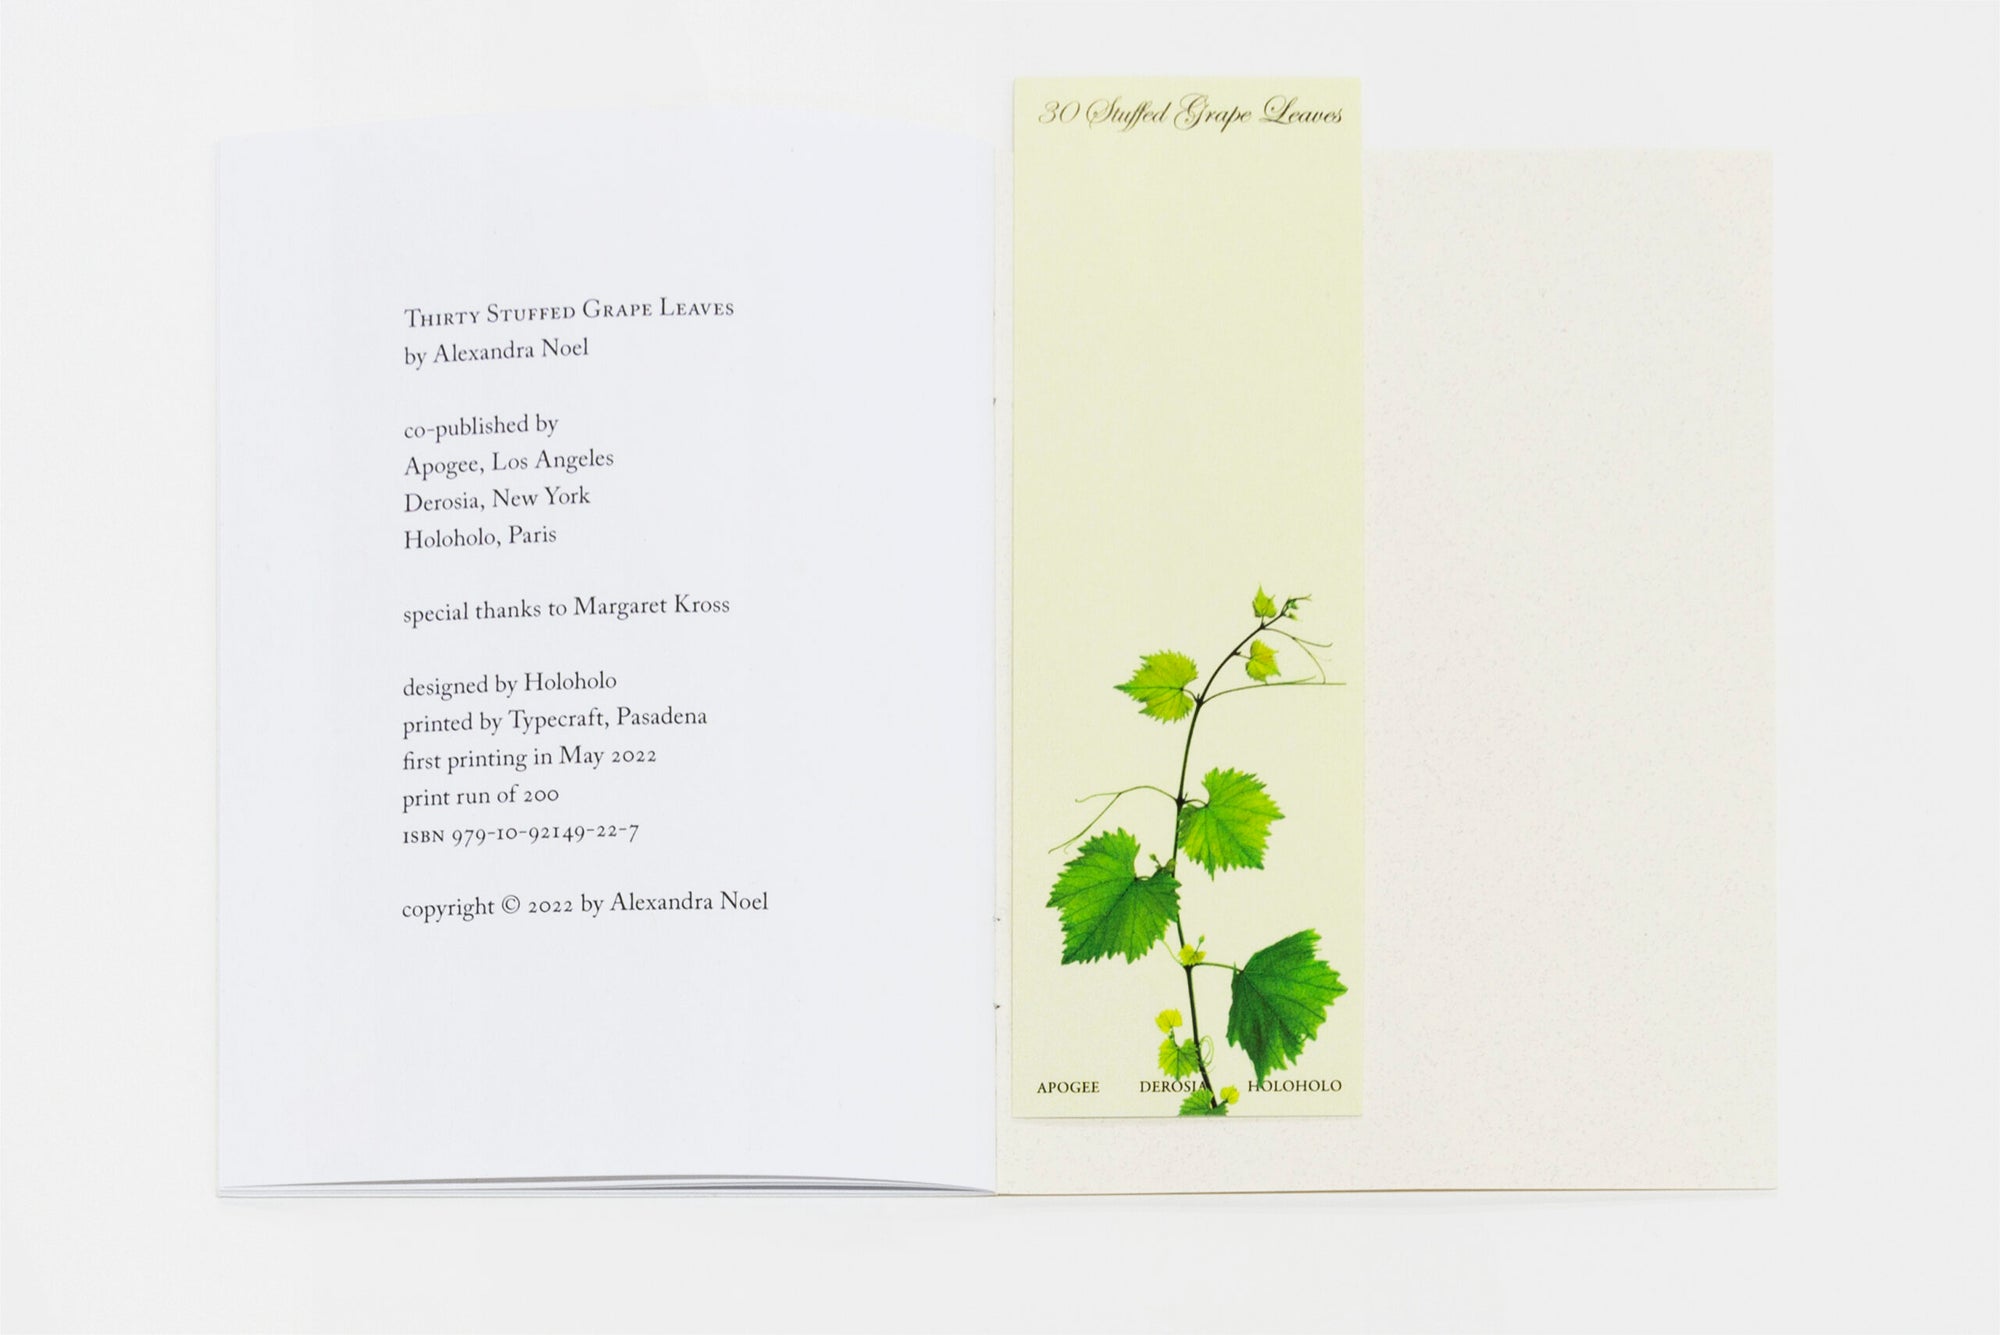 Thirty Stuffed Grape Leaves
by Alexandra Noel
co-published by
Apogee, Los Angeles
Derosia, New York
Holoholo, Paris
special thanks to Margaret Kross
designed by Holoholo
printed by Typecraft, Pasadena
first printing in May 2022
print run of 200
ISBN 979-10-92149-22-7
copyright © 2022 by Alexandra Noel
30 Stuffed Grape Leaves
APOGEE DEROSIA HOLOHOLO